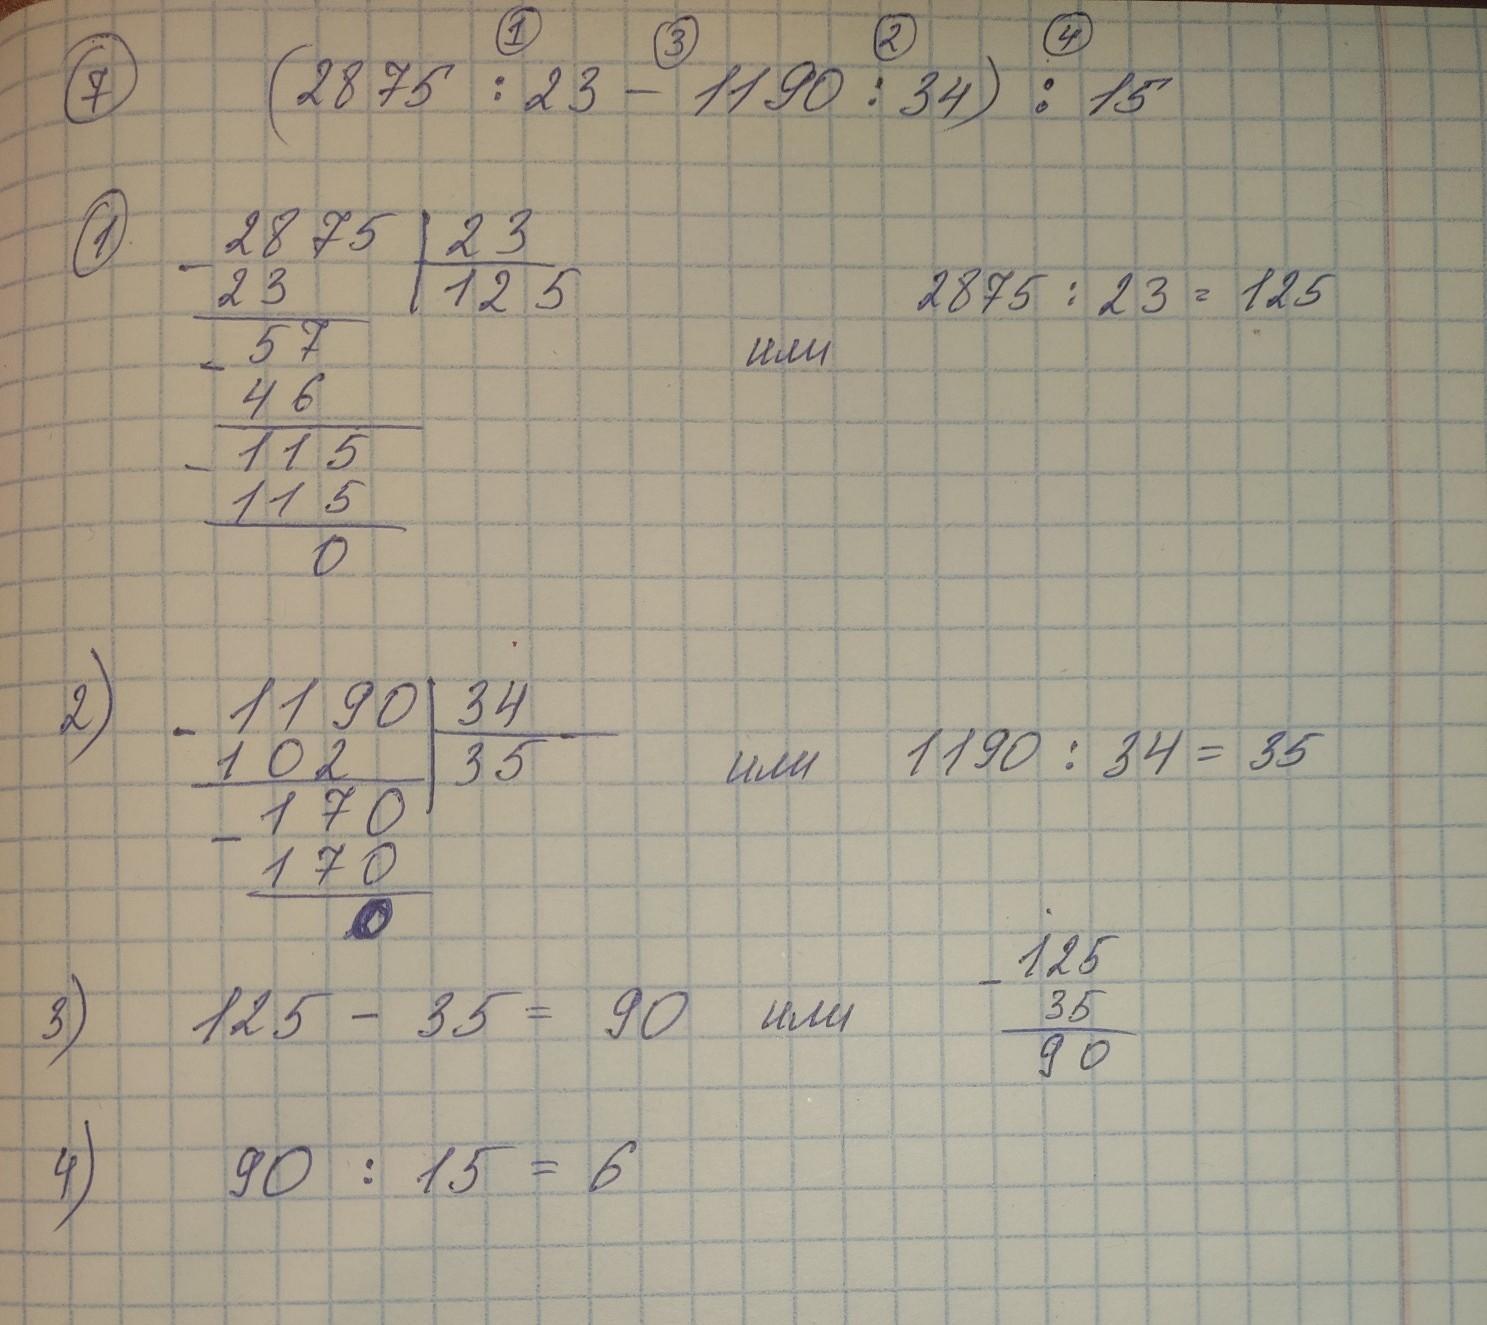 ① ③ ② ④
⑦ (2875 : 23 - 1190 : 34) : 15
① - 2875 | 23
23 | 125
- 57
46
- 115
115
0
или 2875 : 23 = 125
2) - 1190 | 34
102 | 35
- 170
170
0
или 1190 : 34 = 35
3) 125 - 35 = 90 или
- 125
35
90
4) 90 : 15 = 6